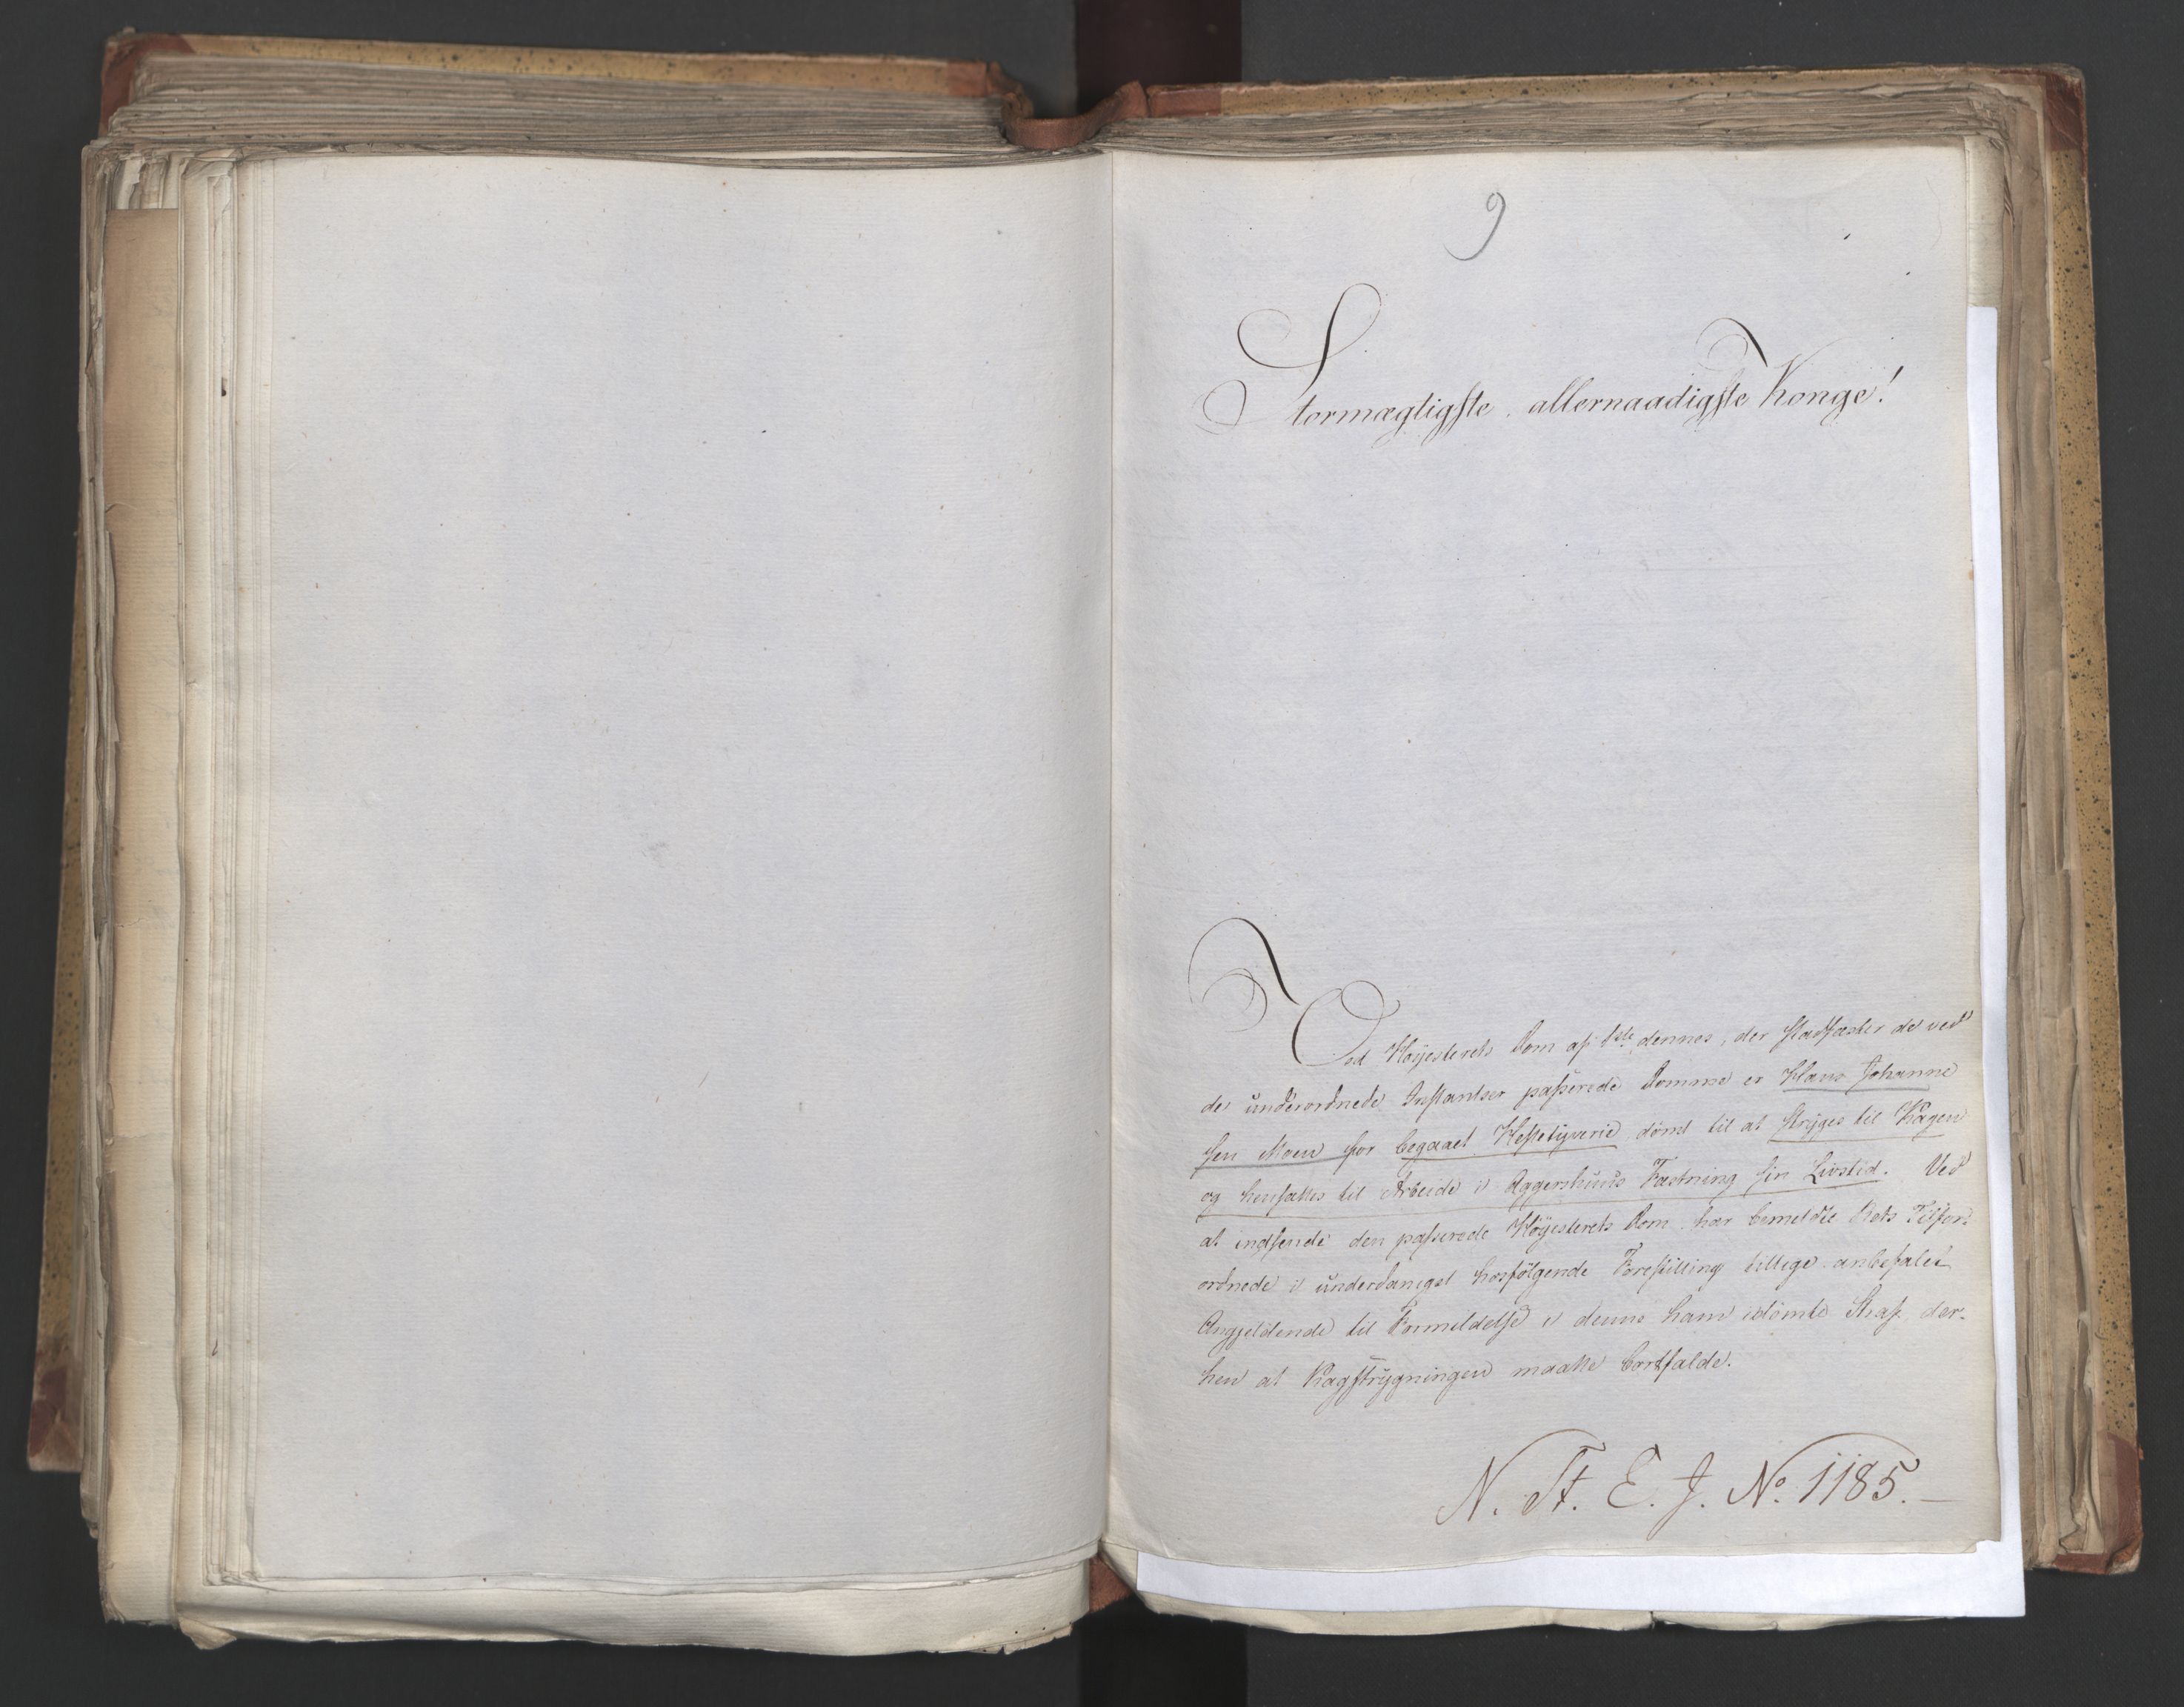 9
Stormægtigste, allernaadigste Konge!
Ved Høyesterets Dom af 1ste dennes, der stadfæster de ved
de underordnede Instantser passerede Domme er Klaus Johanne
sen Moen for begaaet Hestetyverie dömt til at stryges til Kagen
og hensættes til Arbeide i Aggershuus Fæstning sin Livstid. Ved
at indsende den passerede Höyesterets Dom har bemeldte Rets Tilfor-
ordnede i underdanigst hosfölgende Forestilling tillige anbefalet
Angjeldende til Formildelse i denne ham idömte Straf der-
hen at Kagstrygningen maatte bortfalde.
N. St. E. J. No. 1185.